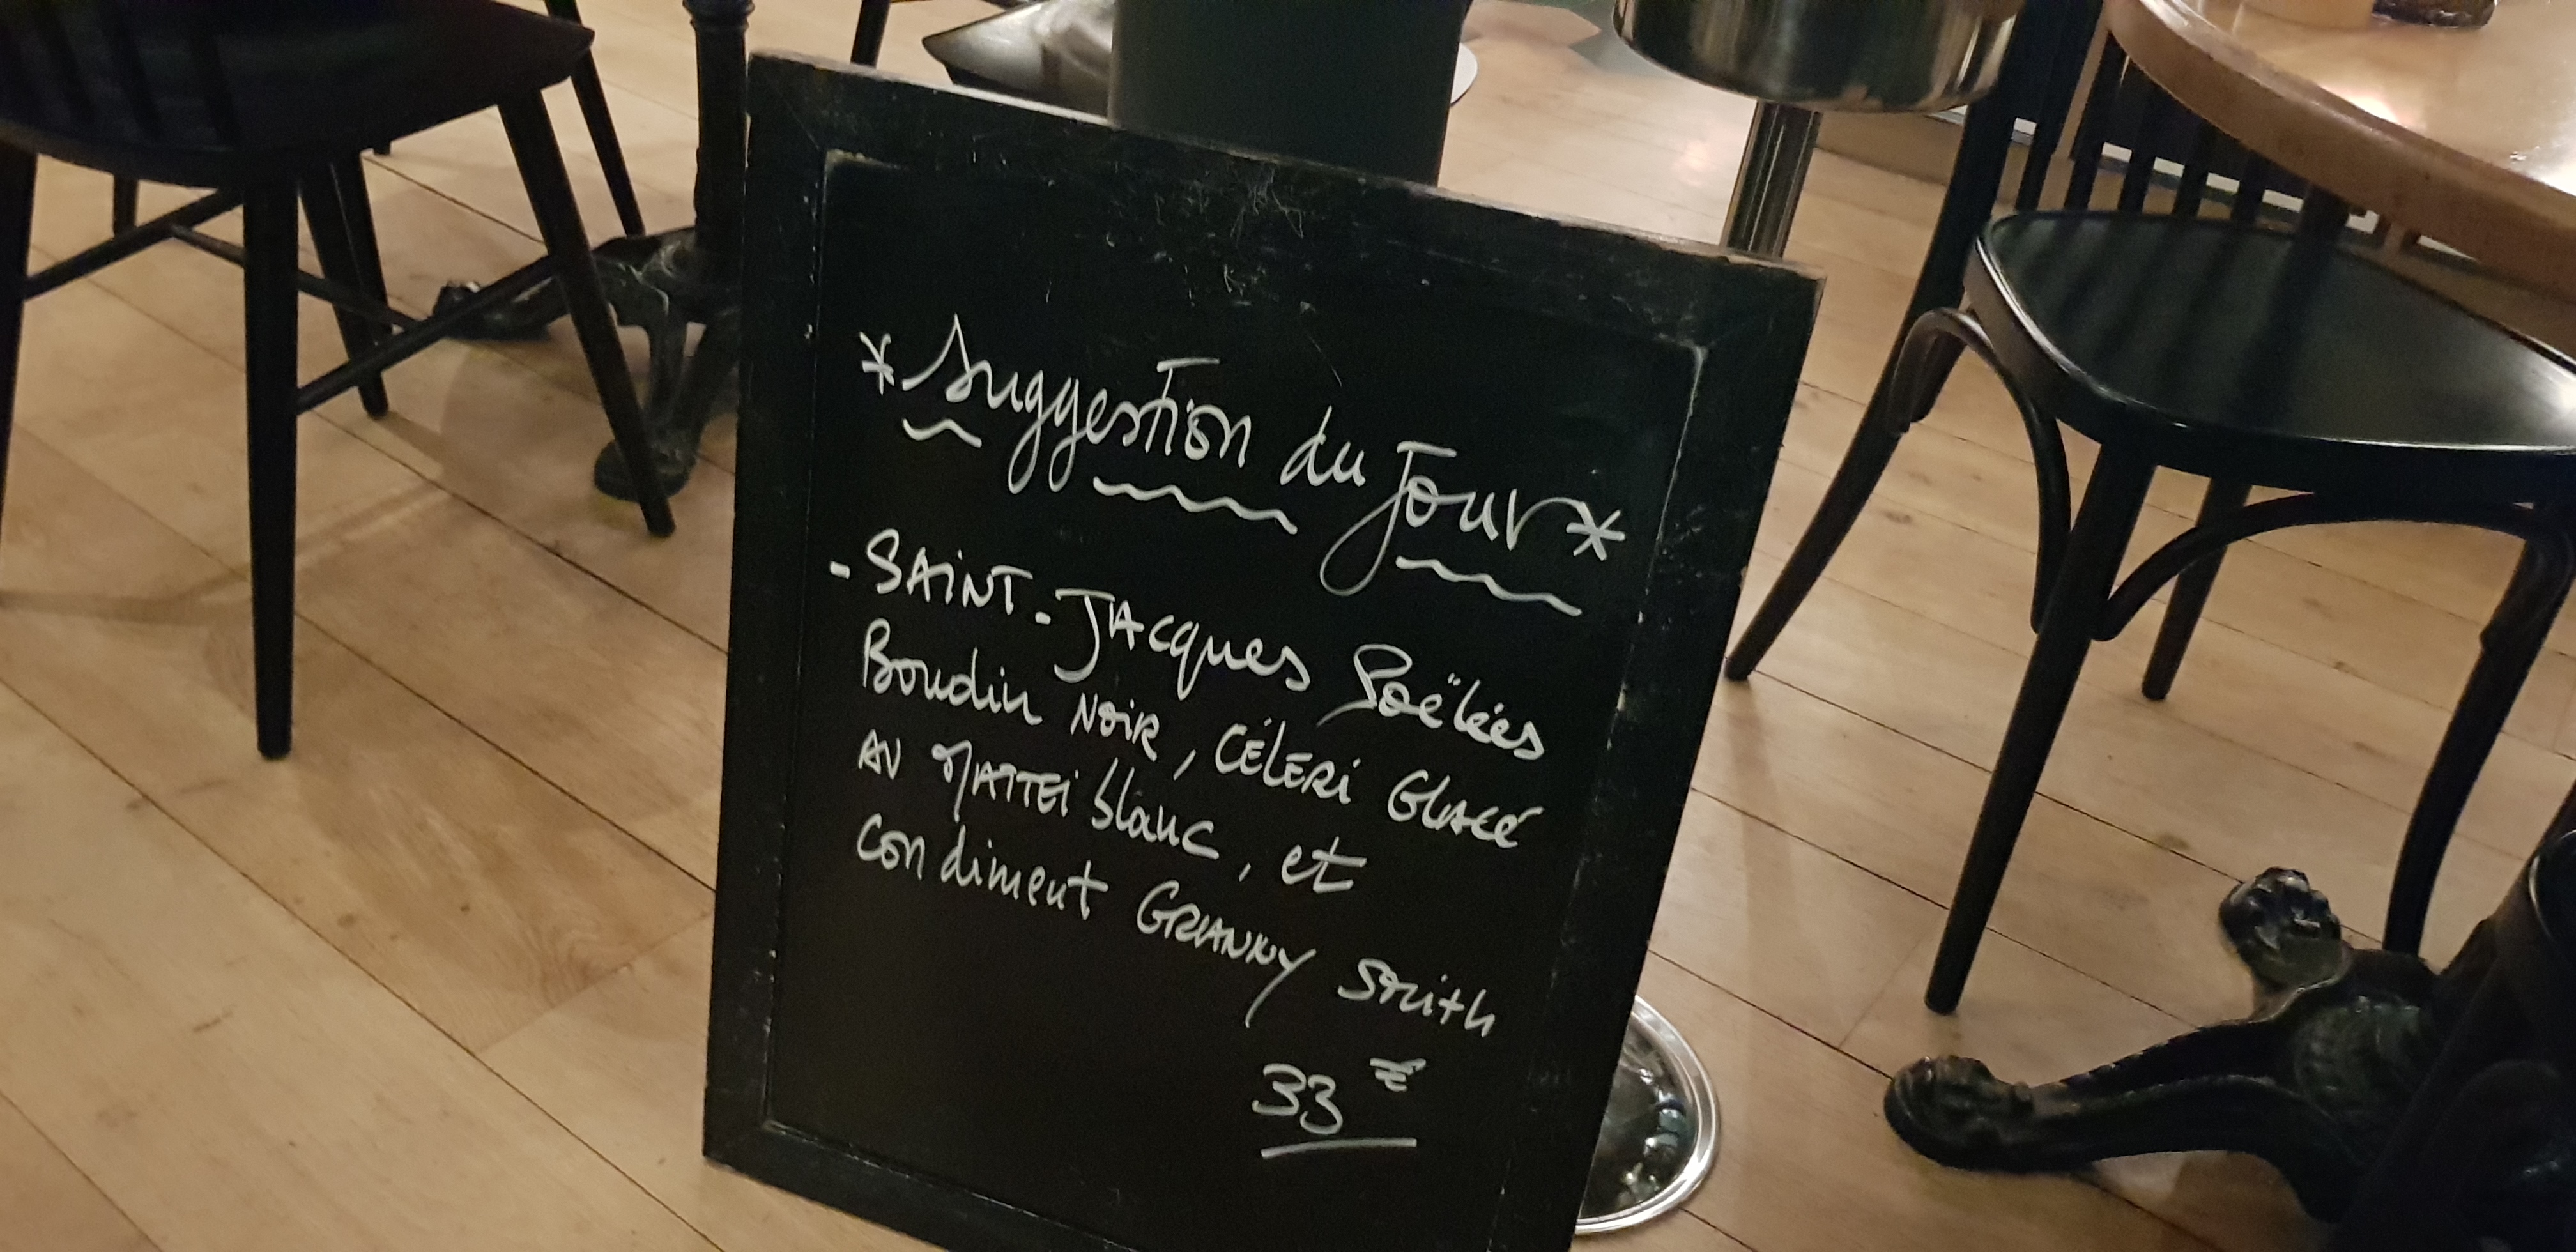 *Suggestion du Jour*
- SAINT-JACques Poëlées
Boudin NoiR, CÉLERi GLACÉ
AU MATTEi blanc, et
Condiment GRANNY Smith
33 €